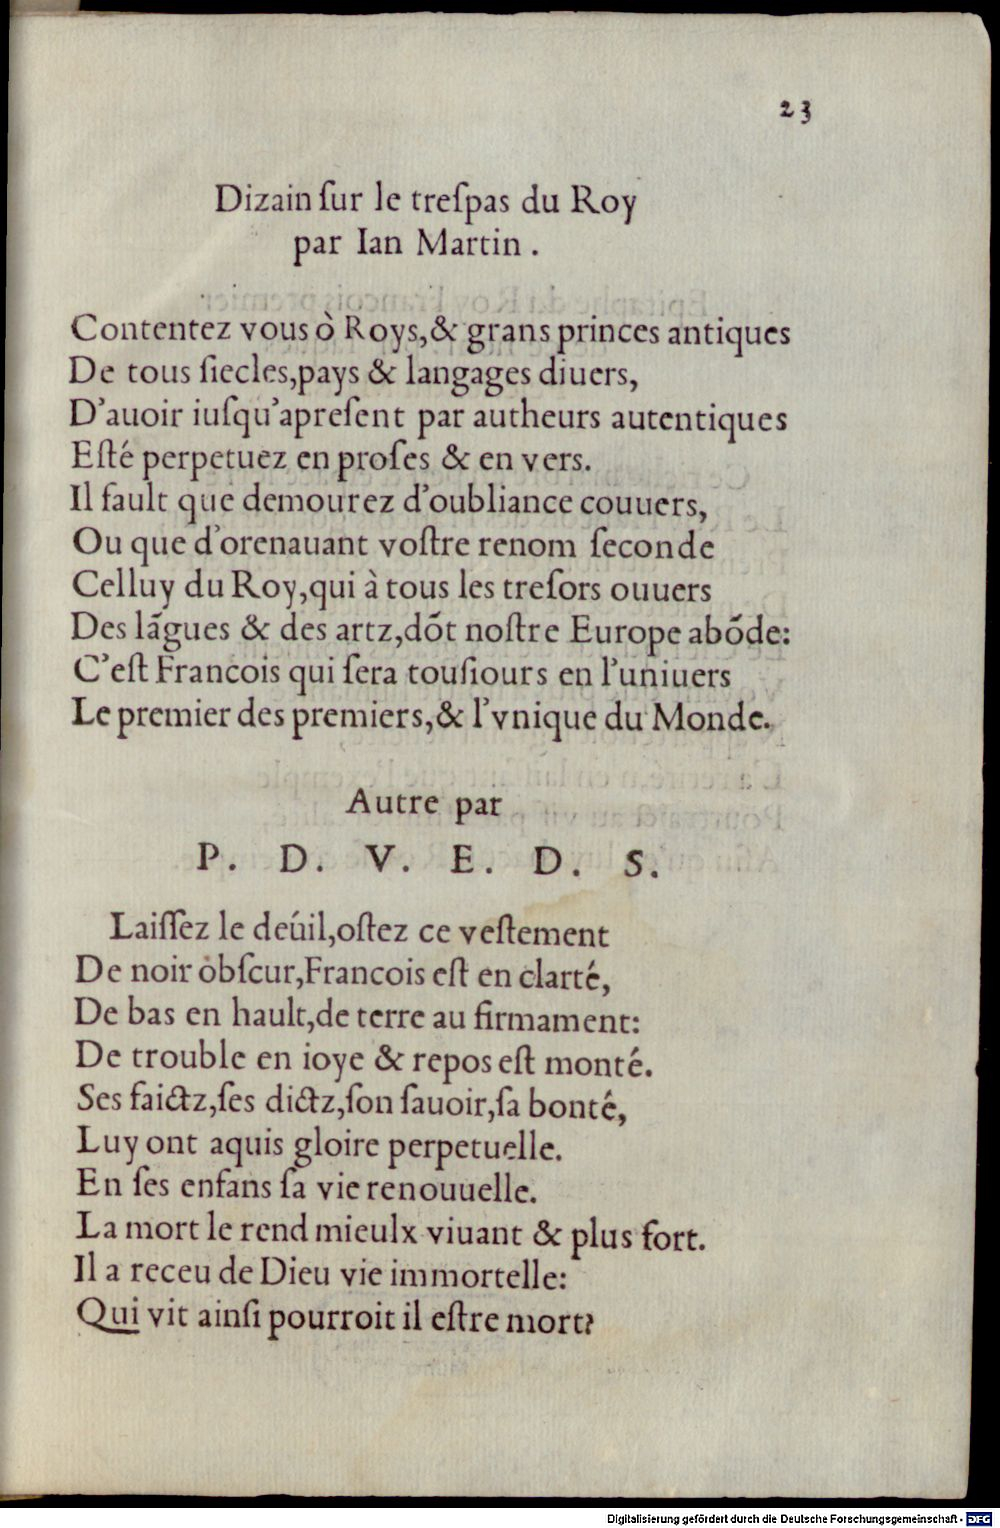 23
Dizain ſur le treſpas du Roy
par Ian Martin .
Contentez vous ò Roys,& grans princes antiques
De tous ſiecles,pays & langages diuers,
D'auoir iuſqu'apreſent par autheurs autentiques
Eſté perpetuez en proſes & en vers.
Il fault que demourez d'oubliance couuers,
Ou que d'orenauant voſtre renom ſeconde
Celluy du Roy,qui à tous les treſors ouuers
Des lãgues & des artz,dõt noſtre Europe abõde:
C'eſt Francois qui ſera touſiours en l'uniuers
Le premier des premiers,& l'vnique du Monde.
Autre par
P. D. V. E. D. S.
Laiſſez le deúil,oſtez ce veſtement
De noir obſcur,Francois eſt en clarté,
De bas en hault,de terre au firmament:
De trouble en ioye & repos eſt monté.
Ses faictz,ſes dictz,ſon ſauoir,ſa bonté,
Luy ont aquis gloire perpetuelle.
En ſes enfans ſa vie renouuelle.
La mort le rend mieulx viuant & plus fort.
Il a receu de Dieu vie immortelle:
Qui vit ainſi pourroit il eſtre mort?
Digitalisierung gefördert durch die Deutsche Forschungsgemeinschaft - DFG